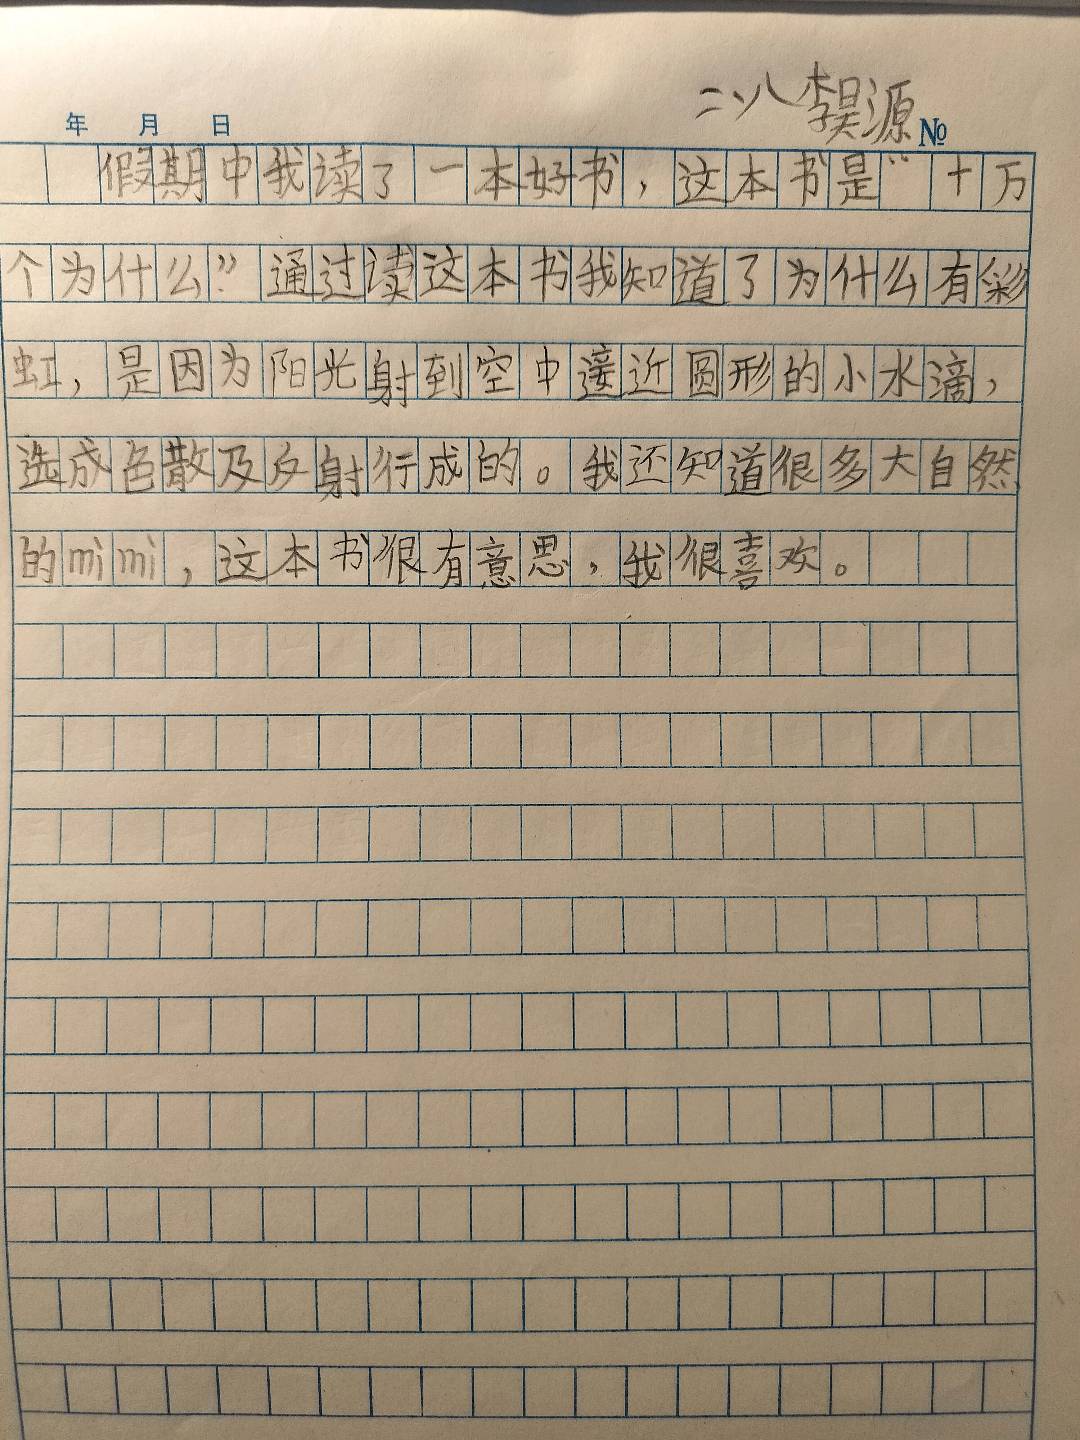 二、八 李昊源
年 月 日 №
假期中我读了一本好书，这本书是“十万
个为什么”通过读这本书我知道了为什么有彩
虹，是因为阳光射到空中接近圆形的小水滴，
选成色散及反射行成的。我还知道很多大自然
的mì mì，这本书很有意思，我很喜欢。